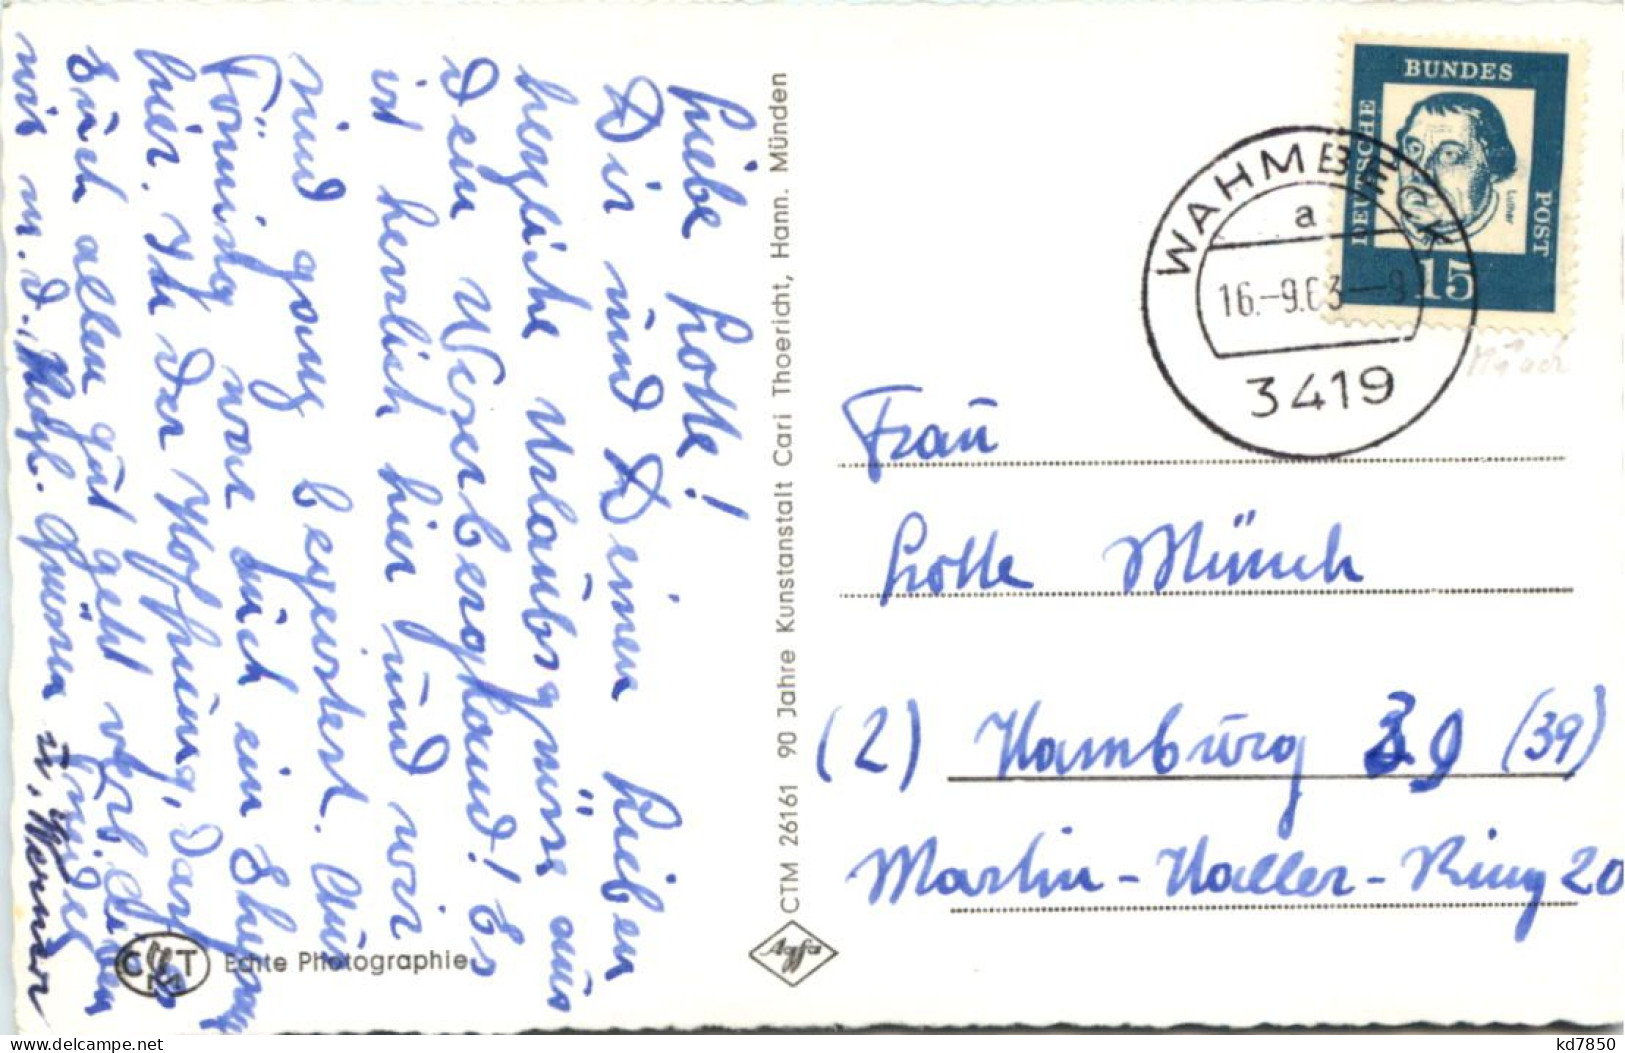 Liebe Lotte!
Dir und Deinen Lieben
herzliche Urlaubsgrüße aus
Dein Weserbergland! Es
ist herrlich hier und wir
sind ganz begeistert. Auch
Tönning war auch ein
hier. In der Hoffnung, daß es
Euch allen gut geht verbleiben
wir m. d. herzl. Grüßen
u. Werner
Echte Photographie
CTM
CTM 26161 90 Jahre Kunstanstalt Carl Thoericht, Hann. Münden
Agfa
DEUTSCHE BUNDES POST
Luther
15
WAHMBECK
a
16.-9.63-9
3419
Frau
Lotte Münch
(2) Hamburg 39 (39)
Martin-Haller-Ring 20
delcampe.net
kd7850